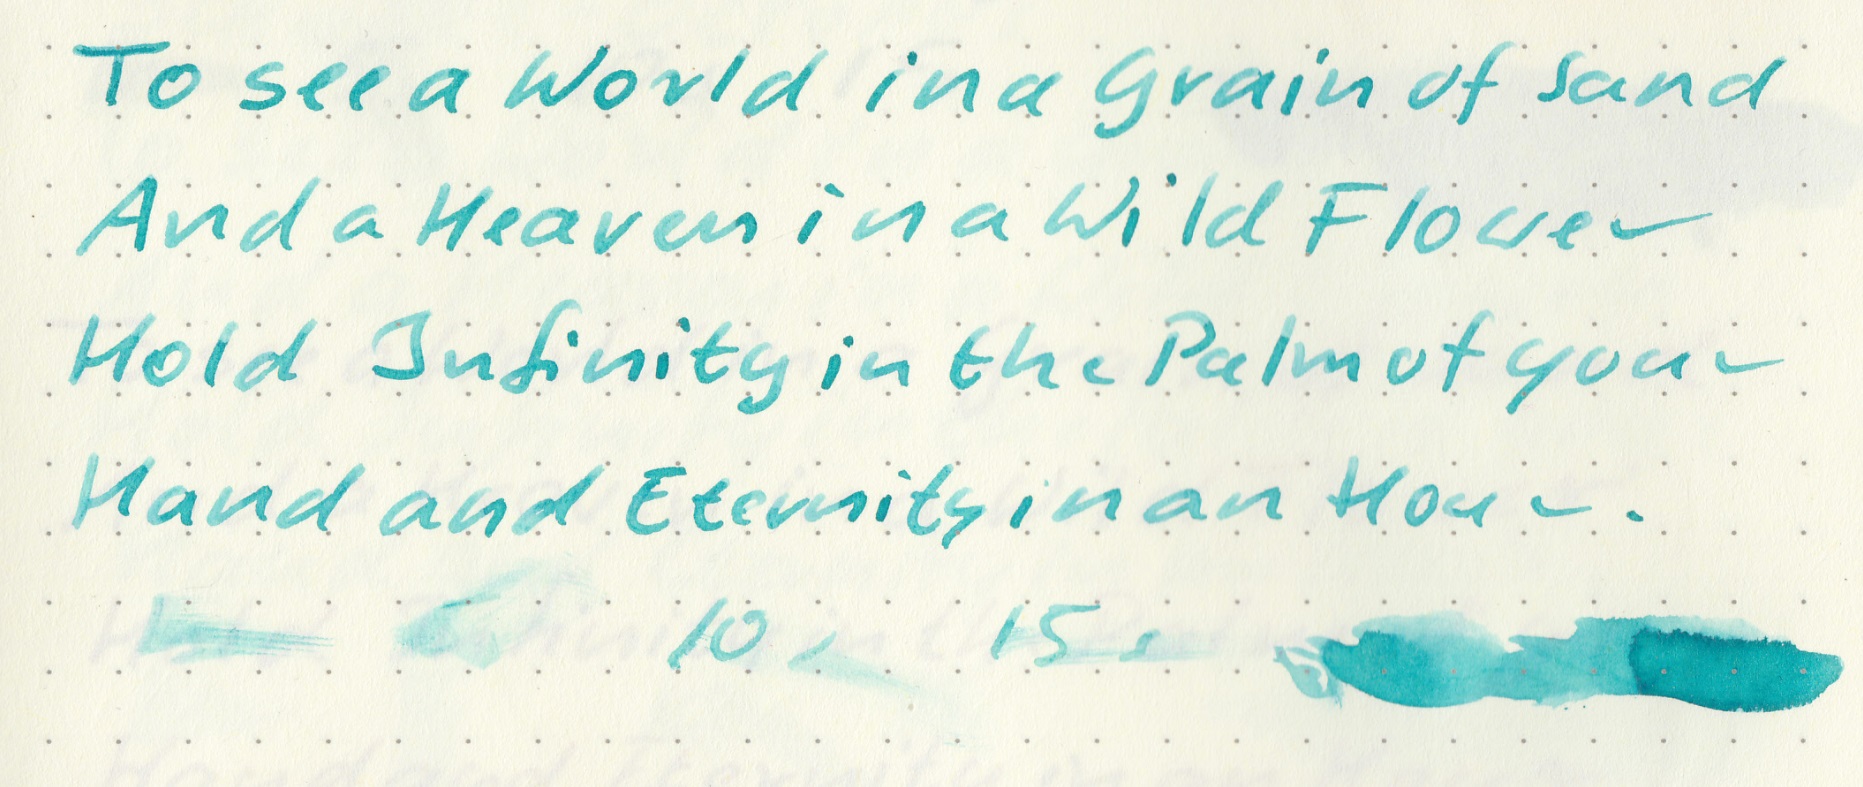 To see a World in a Grain of Sand
And a Heaven in a Wild Flower
Hold Infinity in the Palm of your
Hand and Eternity in an Hour.
10 s 15 s